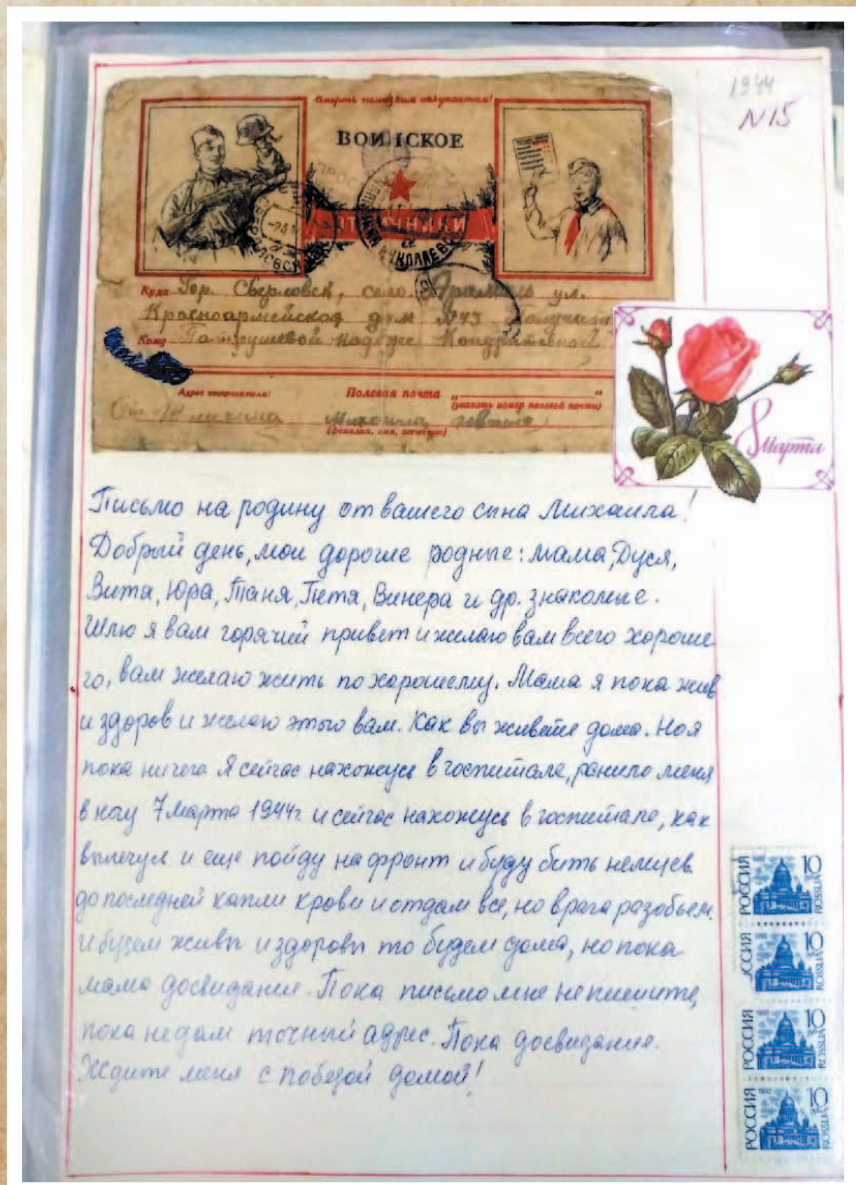 1944
N15
ВОИНСКОЕ
ОТЛИЧНИКИ
Куда Гор. Свердловск, село. Арамиль ул.
Красноармейская дом N73
Кому Патрушевой Кондратьевной
Адрес отправителя: Полевая почта „ "
(указать номер полевой почты)
От Михаила
(фамилия, имя, отчество)
8 Марта
Письмо на родину от вашего сына Михаила!
Добрый день, мои дорогие родные: мама, Дуся,
Витя, Юра, Таня, Петя, Винера и др. знакомые.
Шлю я вам горячий привет и желаю вам всего хороше
го, вам желаю жить по хорошему. Мама я пока жив
и здоров и желаю этого вам. Как вы живете дома. Но я
пока ничего я сейчас нахожусь в госпитале, ранило меня
в ногу 7 марта 1944г. и сейчас нахожусь в госпитале, как
вылечусь и еще пойду на фронт и буду бить немцев
до последней капли крови и отдам все, но врага разобьем.
и будем живы и здоровы то будем дома, но пока
мама досвидания. Пока письмо мне не пишите,
пока не дам точный адрес. Пока досвидание.
Ждите меня с победой домой!
РОССИЯ 10 ROSSIJA
РОССИЯ 10 ROSSIJA
РОССИЯ 1992 10 ROSSIJA
РОССИЯ 1992 10 ROSSIJA